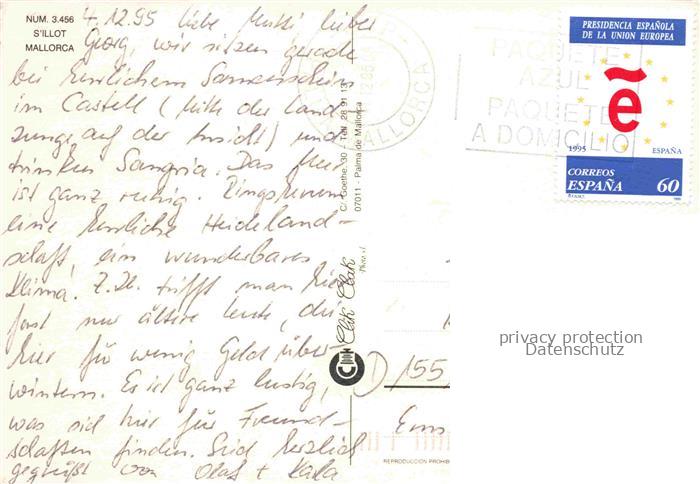 NUM. 3.456
S'ILLOT
MALLORCA
4.12.95 liebe Mutti lieber
Georg, wir sitzen gerade
bei herrlichem Sonnenschein
im Castell (Mitte der Land
zunge auf der Ansicht) und
trinken Sangria. Das Meer
ist ganz ruhig. Ringsherum
eine herrliche Heideland-
schaft, ein wunderbares
Klima. Z.Zt. trifft man hier
fast nur ältere Leute, die
hier für wenig Geld über-
wintern. Es ist ganz lustig,
was sich hier für Freund-
schaften finden. Seid herzlich
gegrüßt von Olaf +
C/. Goethe, 30 - Telf. 28 91 13
07011 - Palma de Mallorca
Clik Clak
MALLORCA
PAQUETE
AZUL
PAQUETE
A DOMICILIO
PRESIDENCIA ESPAÑOLA
DE LA UNION EUROPEA
ẽ
1995 ESPAÑA
CORREOS
ESPAÑA 60
privacy protection
Datenschutz
D 155
Ems
REPRODUCCION PROHIB